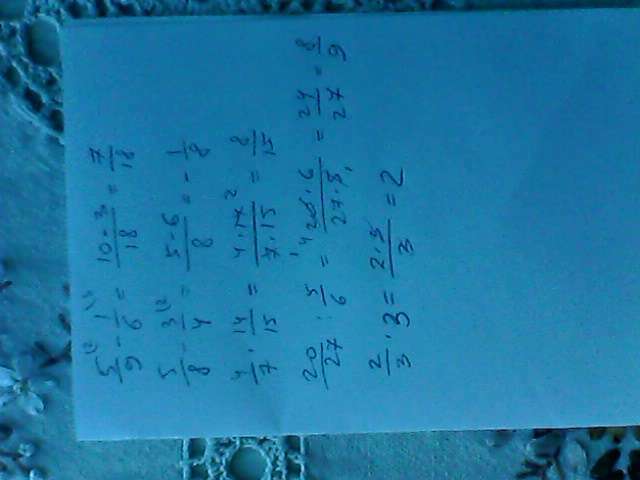 5/9 (2 - 1/6 (3 = 10-3/18 = 7/18
5/8 - 3/4 (2 = 5-6/8 = - 1/8
4/7 · 14/15 = 4·14 2/7·15 = 8/15
20/27 : 5/6 = 4 20·6/27·5 1 = 24/27 = 8/9
2/3 · 3 = 2·3/3 = 2